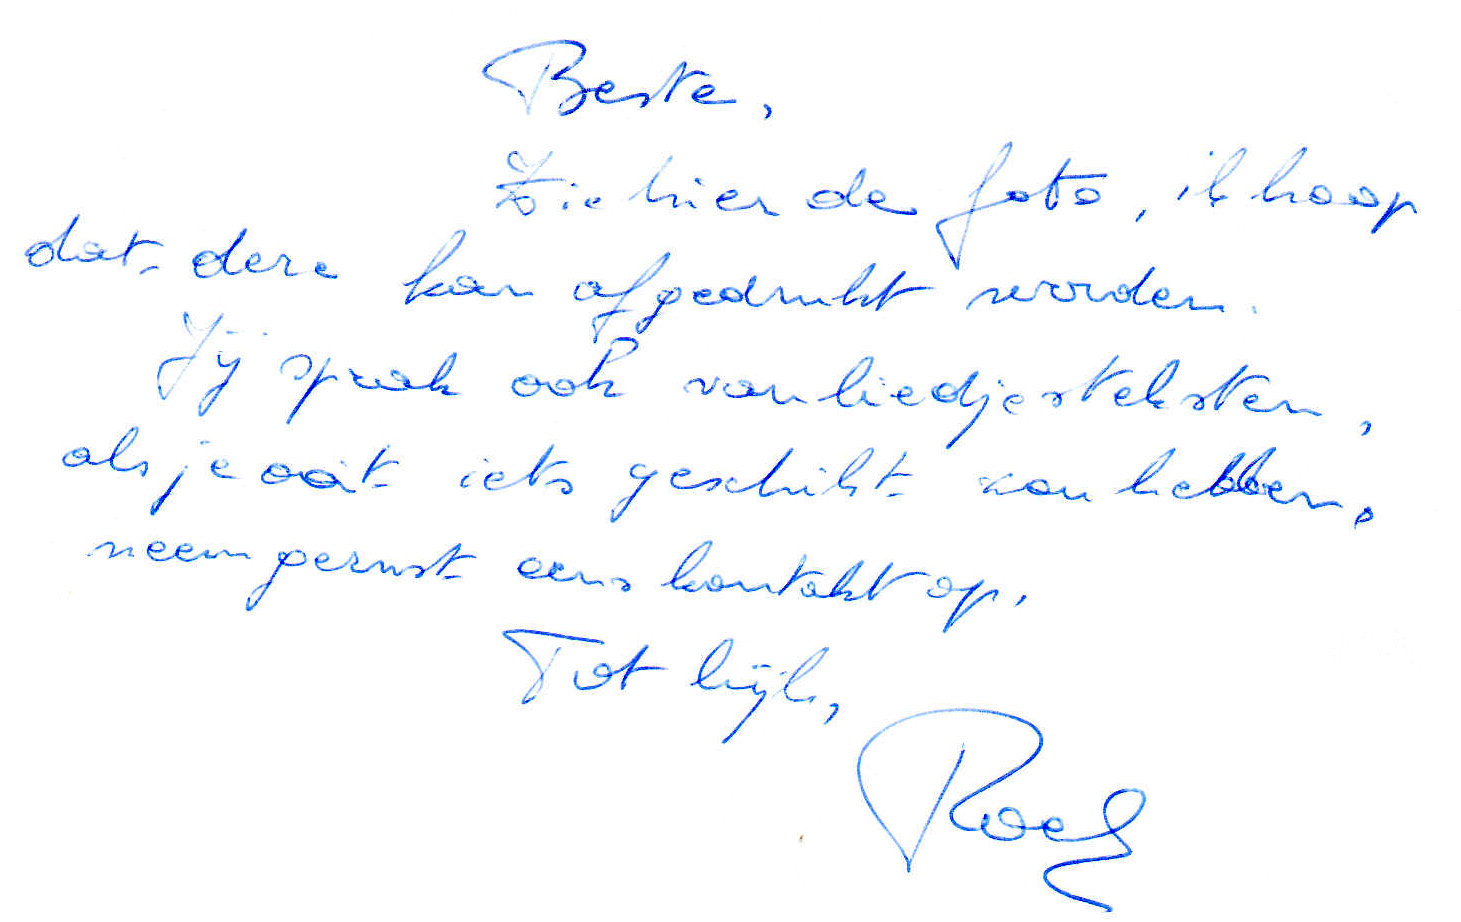 Beste,
Zie hier de foto, ik hoop
dat deze kan afgedrukt worden.
Jij sprak ook van liedjesteksten,
als je ooit iets geschikt zou hebben,
neem gerust eens kontakt op.
Tot kijk,